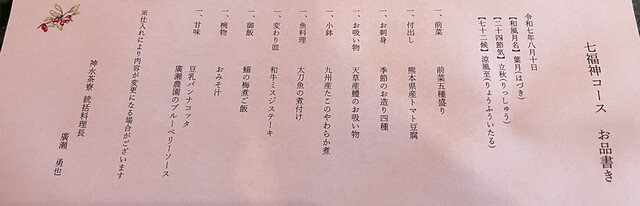 七福神コース　お品書き
令和七年八月十日
【和風月名】葉月(はづき)
【二十四節気】立秋(りっしゅう)
【七十二候】涼風至(りょうふういたる)
一、前菜　前菜五種盛り
一、付出し　熊本県産トマト豆腐
一、お刺身　季節のお造り四種
一、お吸い物　天草産鱧のお吸い物
一、小鉢　九州産たこのやわらか煮
一、魚料理　太刀魚の煮付け
一、変わり皿　和牛ミスジステーキ
一、御飯　鰯の梅煮ご飯
一、椀物　おみそ汁
一、甘味　豆乳パンナコッタ
廣瀬農園のブルーベリーソース
※仕入れにより内容が変更になる場合がございます
神水茶寮　統括料理長
廣瀬　勇也